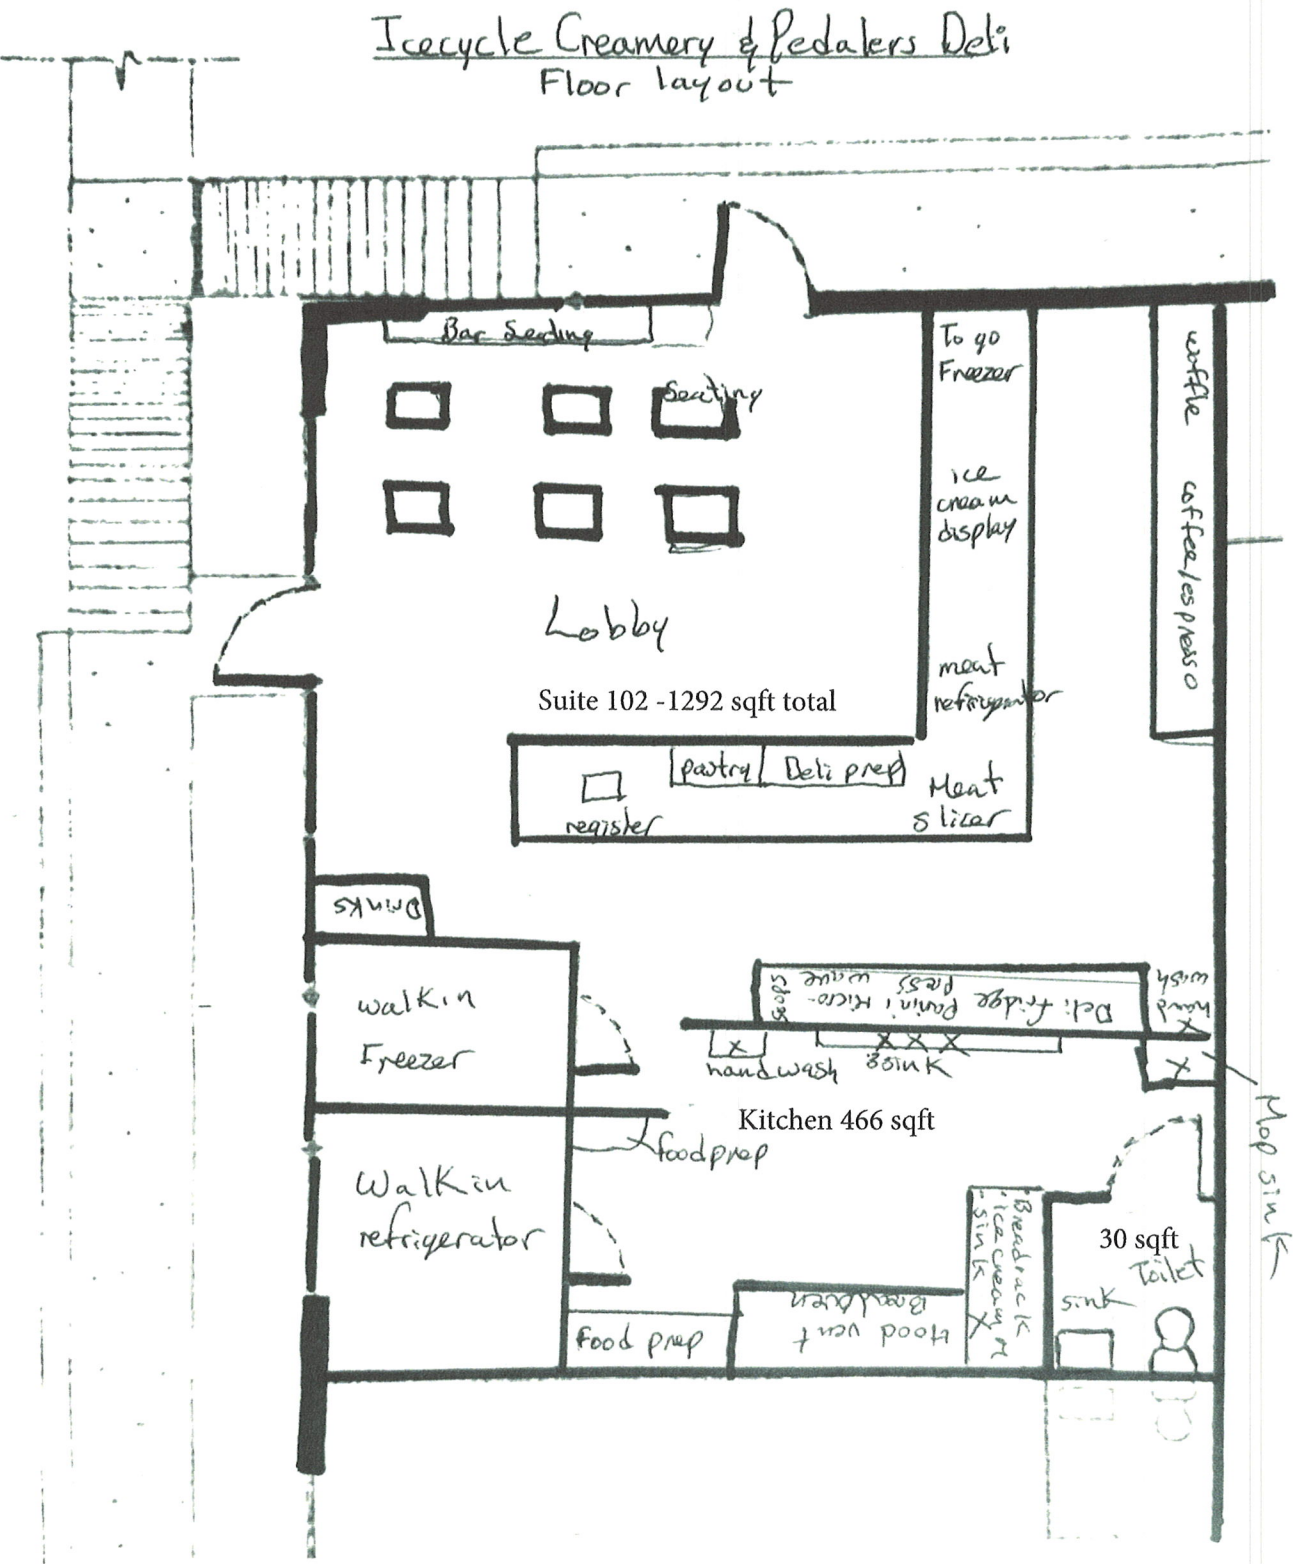 Icecycle Creamery & Pedalers Deli
Floor layout
Bar Seating
Seating
To go
Freezer
ice
cream
display
meat
refrigerator
waffle coffee/espresso
Lobby
Suite 102 -1292 sqft total
pastry
Deli prep
Meat
slicer
register
Drinks
walkin
Freezer
Soups
Panini
Press
Micro-
wave
Deli fridge
hand
wash
X
X
handwash
X X X
3sink
X
Mop sink
Kitchen 466 sqft
foodprep
Walkin
refrigerator
Food prep
Hood vent
Breadoven
Breadrack
ice cream M
sink X
30 sqft
Toilet
sink